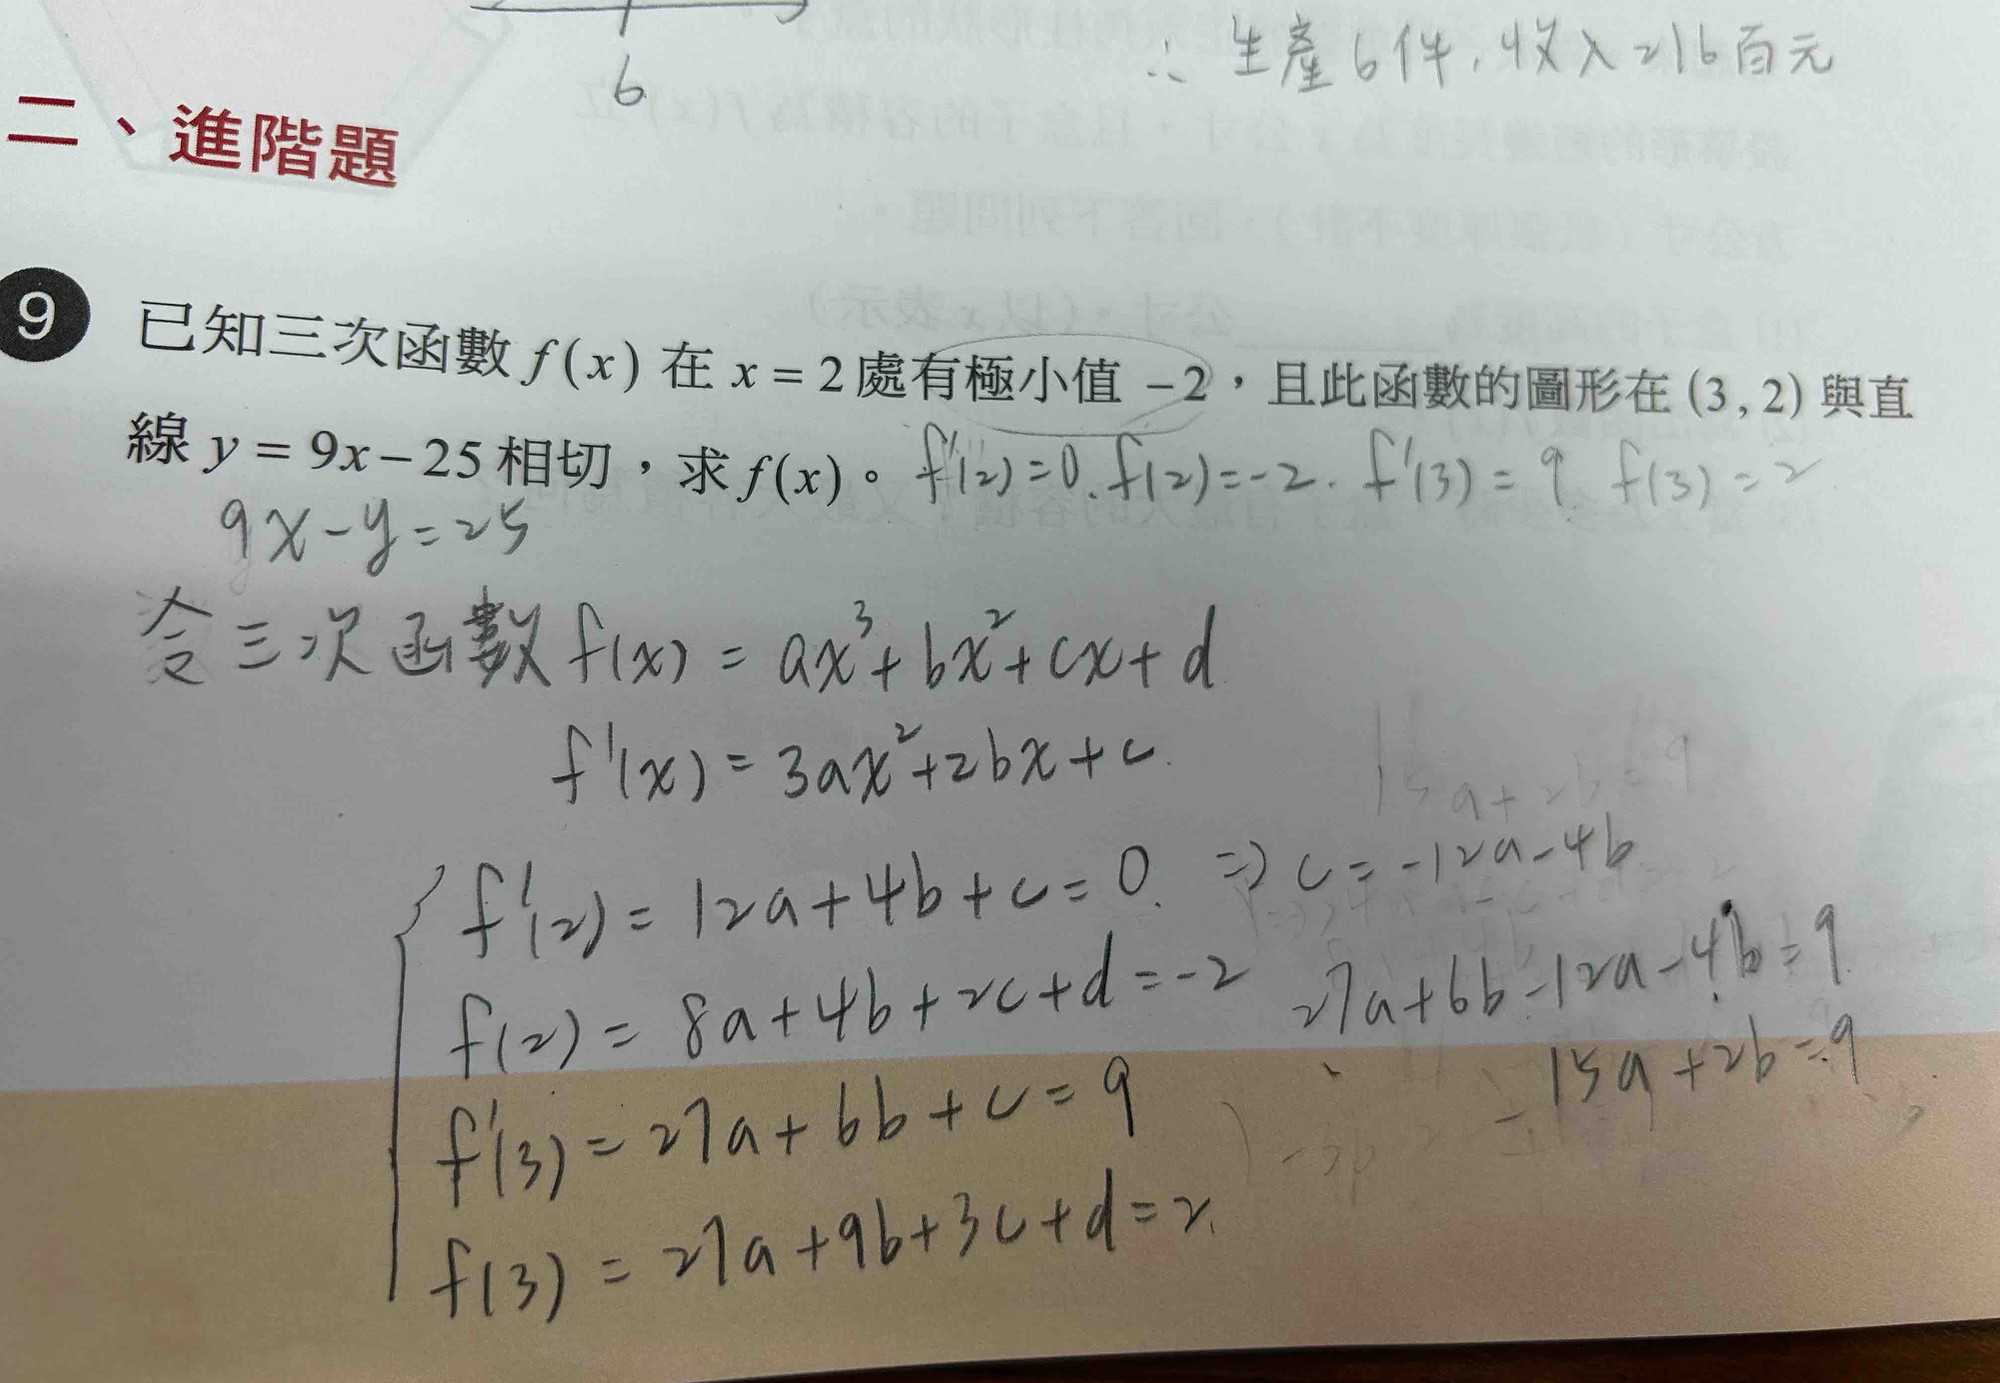 6
∴ 生產6件，收入216百元
二、進階題
9 已知三次函數 f(x) 在 x = 2 處有極小值 −2，且此函數的圖形在 (3 , 2) 與直
線 y = 9x − 25 相切，求 f(x)。 f'(2)=0. f(2)=-2. f'(3)=9 f(3)=2
9x-y=25
令三次函數 f(x) = ax³+bx²+cx+d
f'(x) = 3ax²+2bx+c.
15a+2b=9
f'(2) = 12a+4b+c=0. ⇒ c=-12a-4b
f(2) = 8a+4b+2c+d=-2 27a+6b-12a-4b=9
f'(3) = 27a+6b+c=9 =15a+2b=9
f(3) = 27a+9b+3c+d=2.